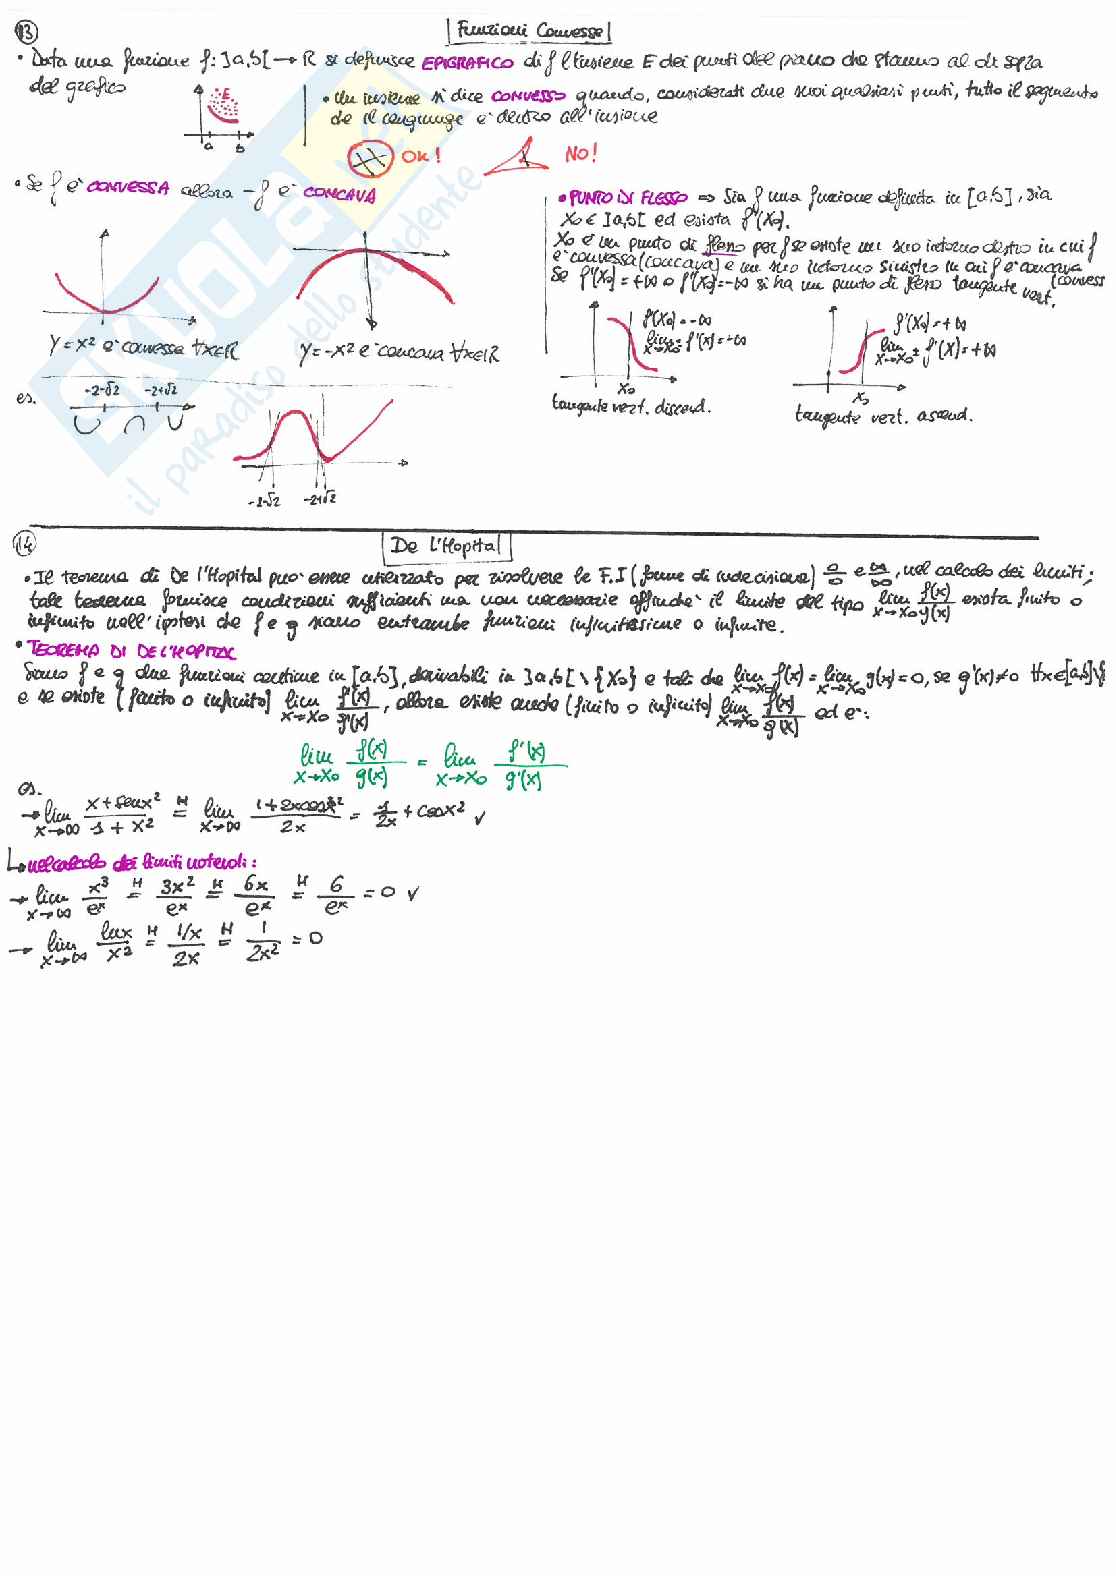 13
Funzioni Convesse
• Data una funzione f: ]a,b[ → R si definisce EPIGRAFICO di f l'insieme E dei punti del piano che stanno al di sopra
del grafico
E
a b
• Un insieme si dice CONVESSO quando, considerati due suoi qualsiasi punti, tutto il segmento
che li congiunge è dentro all'insieme
Ok!
No!
• Se f è CONVESSA allora -f è CONCAVA
y=x² è convessa ∀x∈R
y=-x² è concava ∀x∈R
• PUNTO DI FLESSO ⇒ Sia f una funzione definita in [a,b], sia
x₀ ∈ ]a,b[ ed esista f'(x₀).
x₀ è un punto di flesso per f se esiste un suo intorno destro in cui f
è convessa (concava) e un suo intorno sinistro in cui f è concava
(convess
Se f'(x₀)=+∞ o f'(x₀)=-∞ si ha un punto di flesso tangente vert.
f'(x₀)=-∞
lim x→x₀± f'(x)=+∞
x₀
tangente vert. discend.
f'(x₀)=+∞
lim x→x₀± f'(x)=+∞
x₀
tangente vert. ascend.
es.
-2-√2 -2+√2
-2-√2 -2+√2
14
De L'Hopital
• Il teorema di De l'Hopital può essere utilizzato per risolvere le F.I (forme di indecisione) 0/0 e ∞/∞, nel calcolo dei limiti;
tale teorema fornisce condizioni sufficienti ma non necessarie affinchè il limite del tipo lim x→x₀ f(x)/g(x) esista finito o
infinito nell'ipotesi che f e g siano entrambe funzioni infinitesime o infinite.
• TEOREMA DI DE L'HOPITAL
Siano f e g due funzioni continue in [a,b], derivabili in ]a,b[ \ {x₀} e tali che lim x→x₀ f(x) = lim x→x₀ g(x) = 0, se g'(x)≠0 ∀x∈[a,b]\{
e se esiste (finito o infinito) lim x→x₀ f'(x)/g'(x), allora esiste anche (finito o infinito) lim x→x₀ f(x)/g(x) ed è:
lim x→x₀ f(x)/g(x) = lim x→x₀ f'(x)/g'(x)
es.
→ lim x→∞ x+senx²/1+x² =ᴴ lim x→∞ 1+2xcosx²/2x = 1/2x + cosx² ✓
↳ nel calcolo dei limiti notevoli:
→ lim x→∞ x³/eˣ =ᴴ 3x²/eˣ =ᴴ 6x/eˣ =ᴴ 6/eˣ = 0 ✓
→ lim x→∞ lnx/x² =ᴴ 1/x/2x =ᴴ 1/2x² = 0
SKUOLA.net
il paradiso dello studente